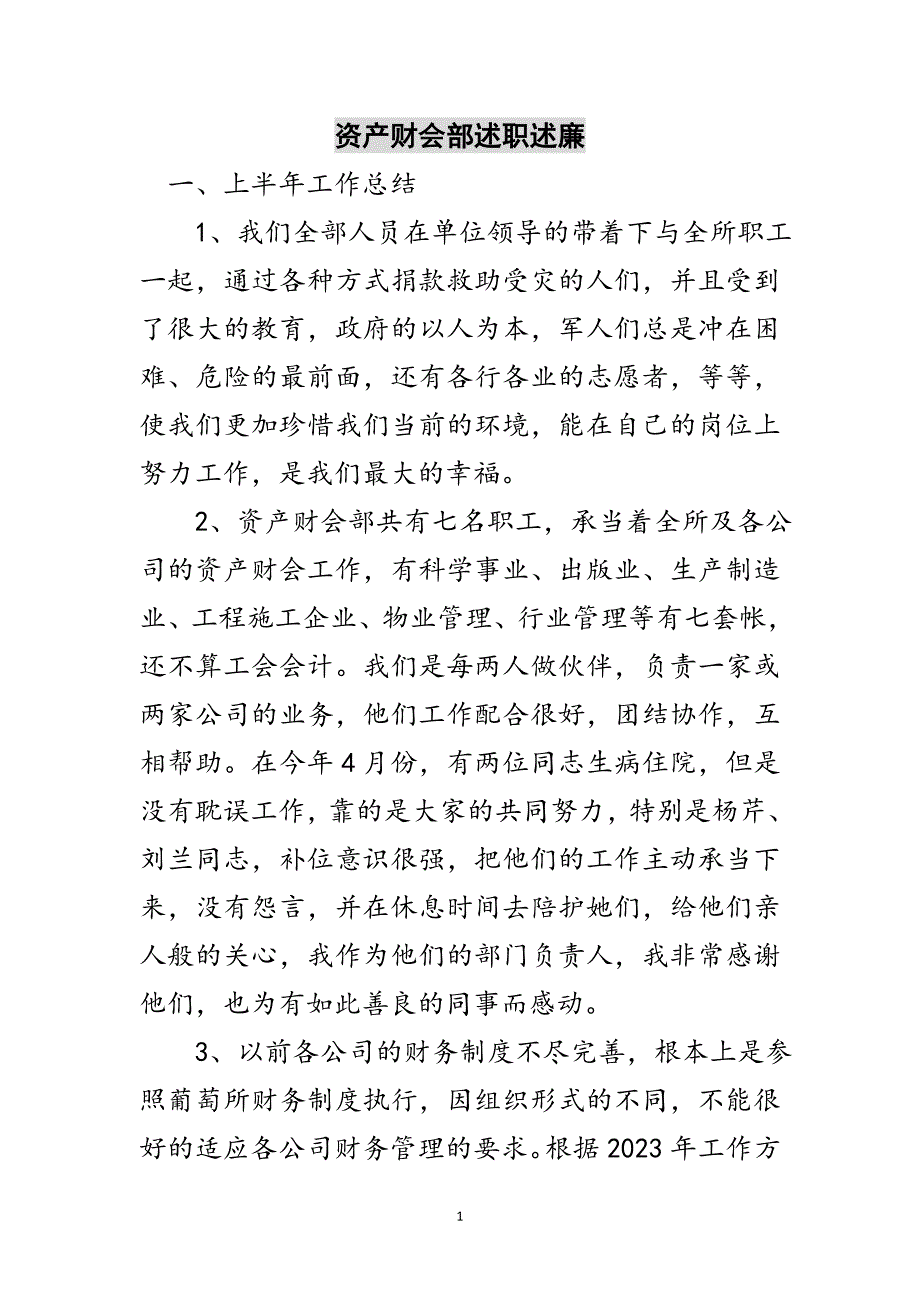 资产财会部述职述廉
一、上半年工作总结
1、我们全部人员在单位领导的带着下与全所职工
一起，通过各种方式捐款救助受灾的人们，并且受到
了很大的教育，政府的以人为本，军人们总是冲在困
难、危险的最前面，还有各行各业的志愿者，等等，
使我们更加珍惜我们当前的环境，能在自己的岗位上
努力工作，是我们最大的幸福。
2、资产财会部共有七名职工，承当着全所及各公
司的资产财会工作，有科学事业、出版业、生产制造
业、工程施工企业、物业管理、行业管理等有七套帐，
还不算工会会计。我们是每两人做伙伴，负责一家或
两家公司的业务，他们工作配合很好，团结协作，互
相帮助。在今年4月份，有两位同志生病住院，但是
没有耽误工作，靠的是大家的共同努力，特别是杨芹、
刘兰同志，补位意识很强，把他们的工作主动承当下
来，没有怨言，并在休息时间去陪护她们，给他们亲
人般的关心，我作为他们的部门负责人，我非常感谢
他们，也为有如此善良的同事而感动。
3、以前各公司的财务制度不尽完善，根本上是参
照葡萄所财务制度执行，因组织形式的不同，不能很
好的适应各公司财务管理的要求。根据2023年工作方
1